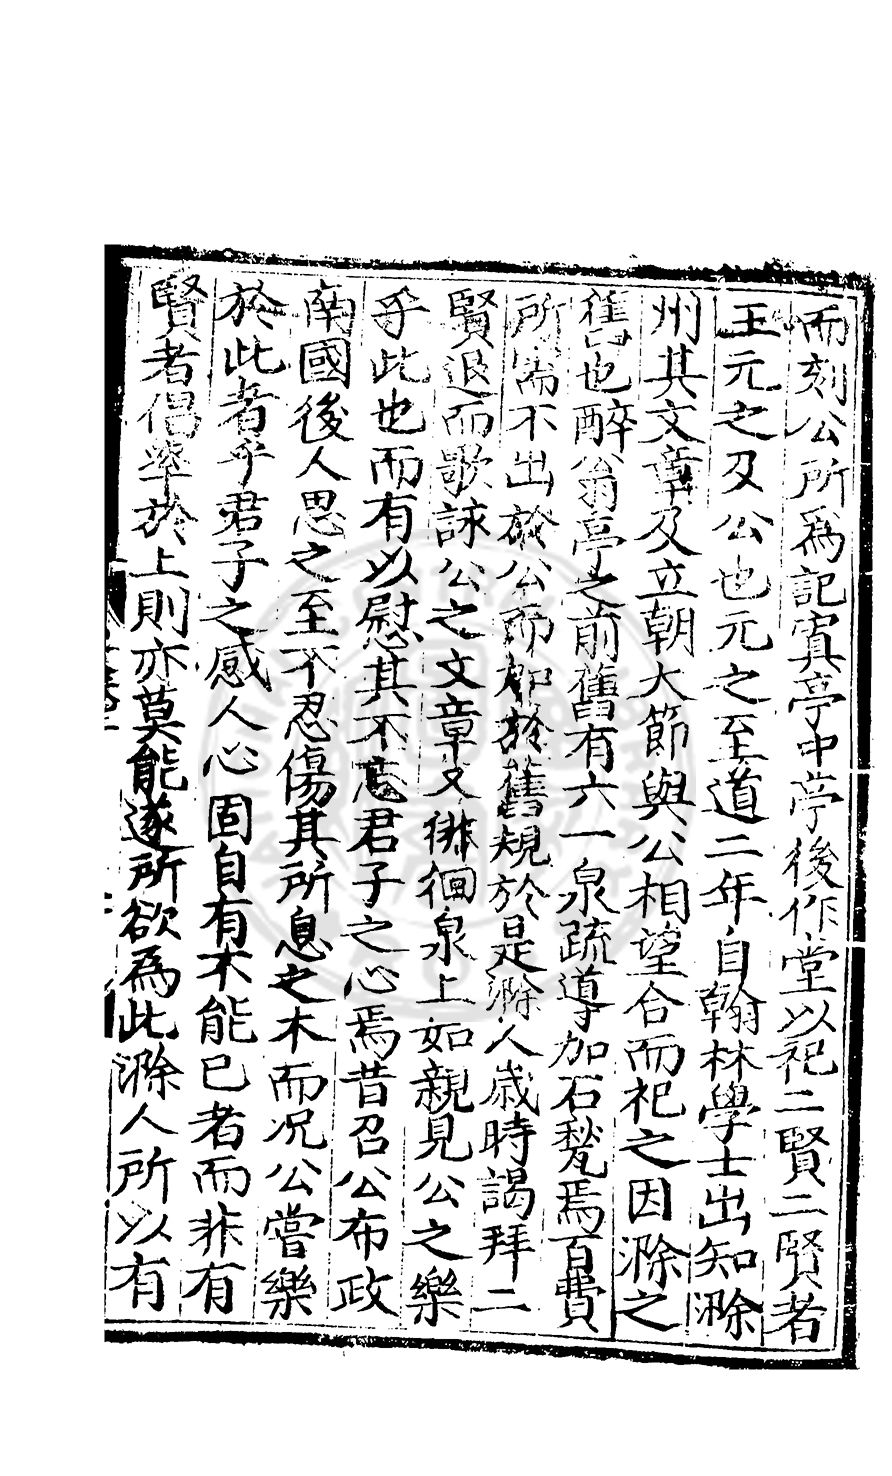 而刻公所爲記寘亭中亭後作堂以祀二賢二賢者
王元之及公也元之至道二年自翰林學士出知滁
州其文章及立朝大節與公相望合而祀之因滁之
舊也醉翁亭之前舊有六一泉疏導加石甃焉百費
所需不出於公而即於舊規於是滁人歳時謁拜二
賢退而歌詠公之文章又徘徊泉上如親見公之樂
乎此也而有以慰其不忘君子之心焉昔召公布政
南國後人思之至不忍傷其所息之木而况公嘗樂
於此者乎君子之感人心固自有不能已者而非有
賢者倡率於上則亦莫能遂所欲為此滁人所以有